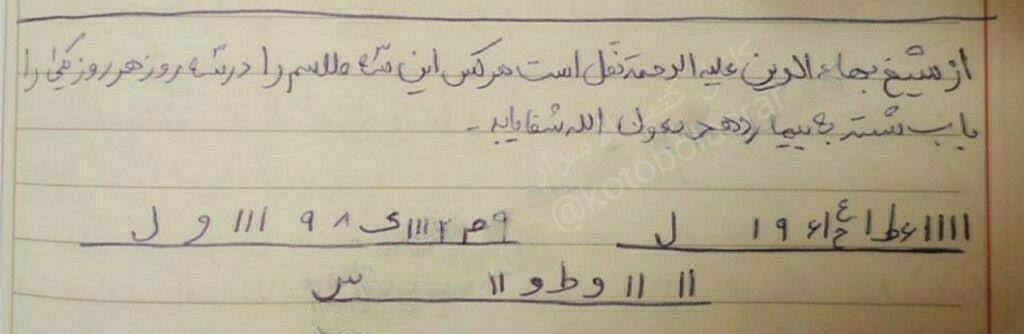 از شیخ بهاء الدین علیه الرحمة نقل است هرکس این سه طلسم را در سه روز هر روز یکی را
باب شسته به بیمار دهد بعون الله شفا یابد -
۱۱۱۱ ۶ ط ا ع ح ۶۱ ۹ ۱ ل
۹ م ۲ ۱۱۱۱ ک ۸ ۹ ۱۱۱ و ل
۱۱ ۱۱ و ط و ۱۱ س
@kotobolasrar